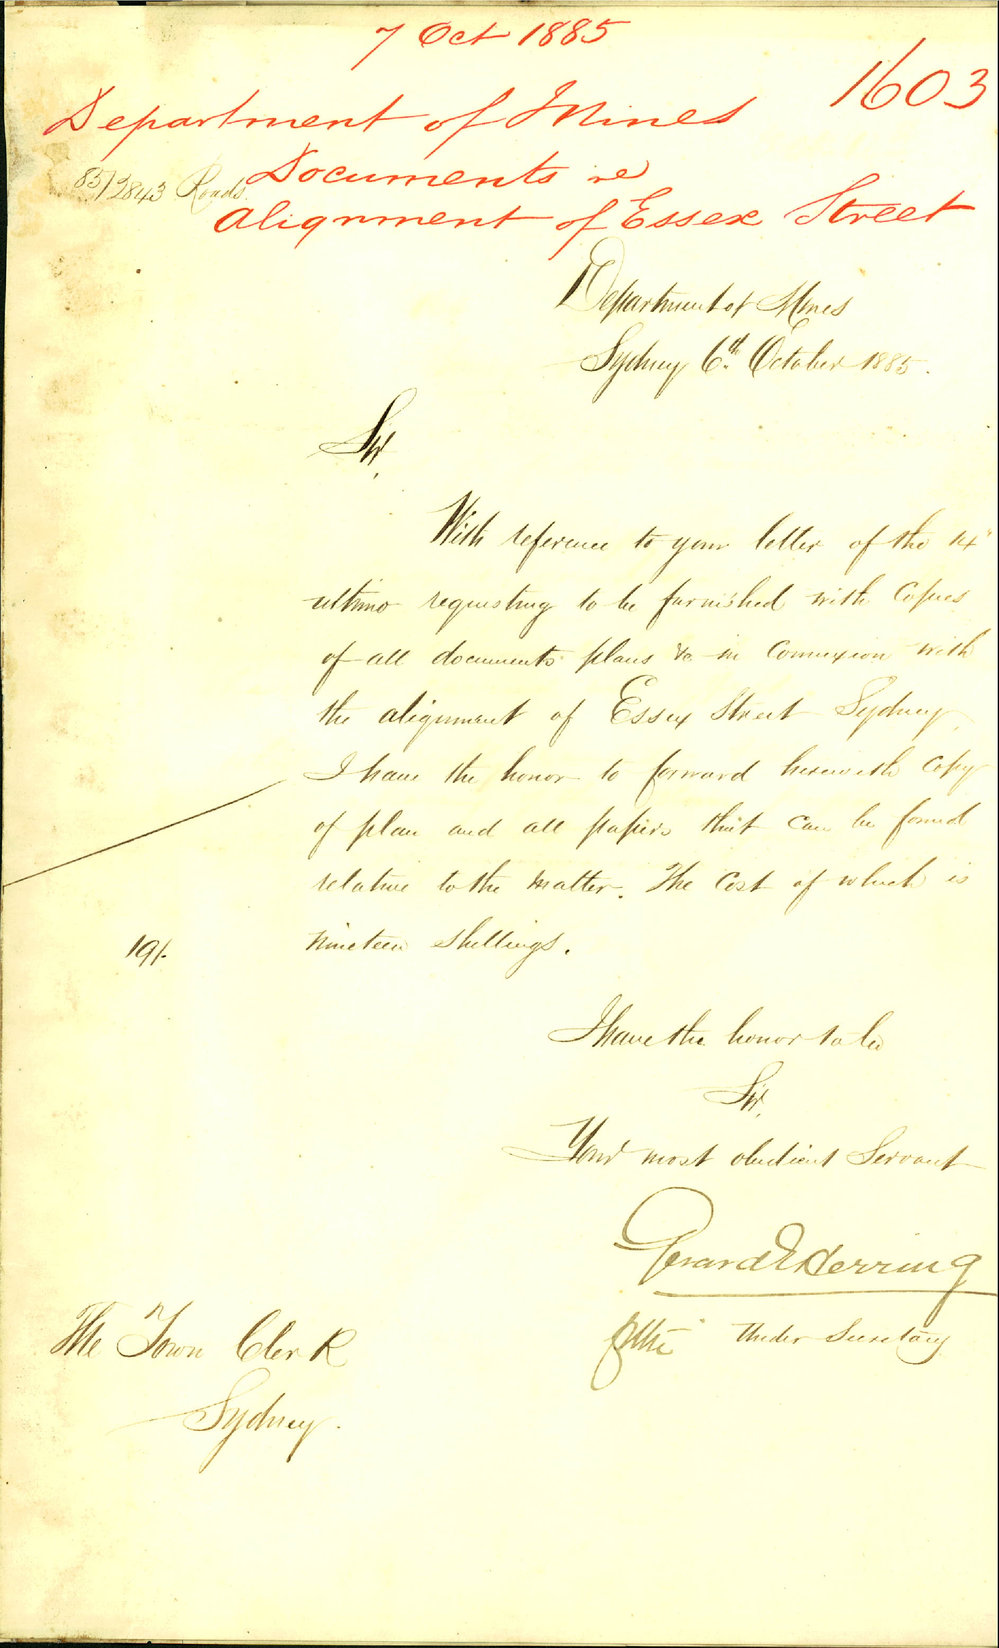 7 Oct 1885
1603
Department of Mines
Documents re
85/2843 Roads.
Alignment of Essex Street
Department of Mines
Sydney 6th October 1885.
Sir,
With reference to your letter of the 14"
ultimo requesting to be furnished with Copies
of all documents plans &a in Connexion with
the alignment of Essex Street Sydney,
I have the honor to forward herewith Copy
of plan and all papers that can be found
relative to the matter. The Cost of which is
19/-
nineteen shillings.
I have the honor to be
Sir,
Your most obedient Servant
Gerard E Herring
Under Secretary
The Town Clerk
Sydney.